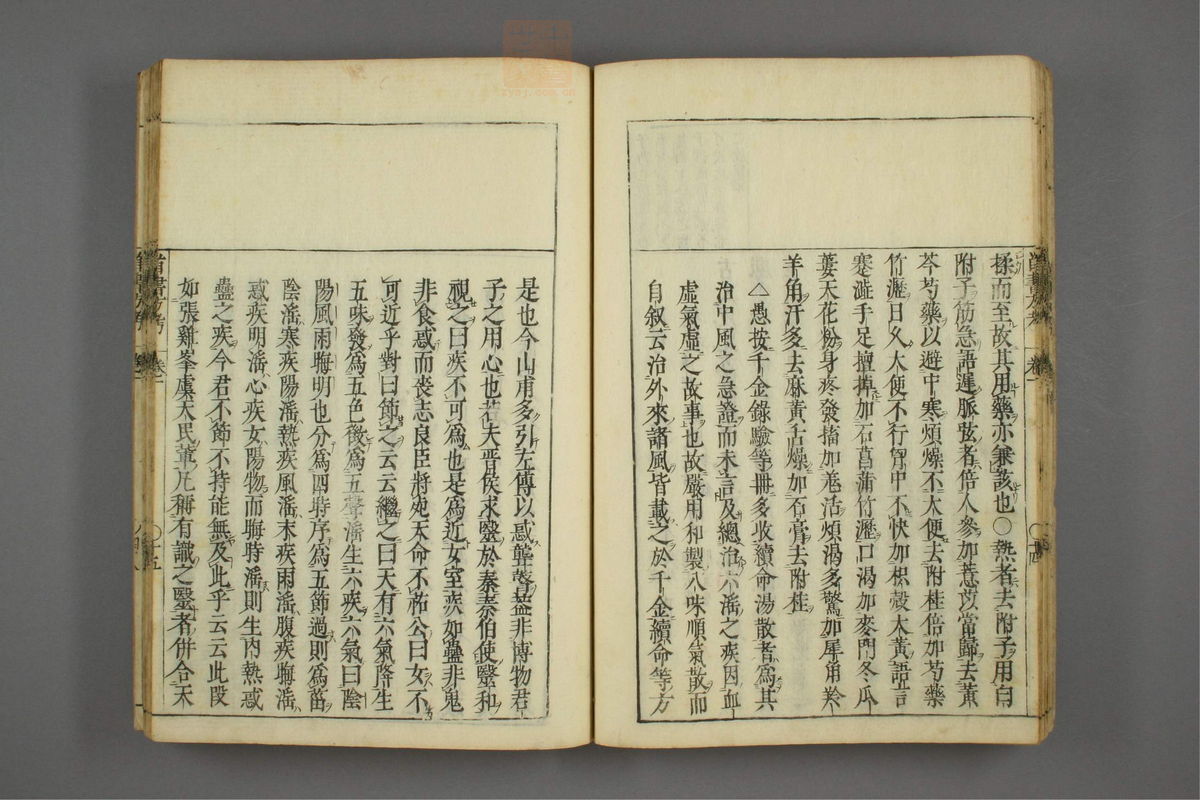 揉而至故其用藥亦兼該也○熱者去附子用白
附子筋急語遲脈弦者倍人參加薏苡當歸去黄
芩芍藥以避中寒煩燥不大便去附桂倍加芍藥
竹瀝日久大便不行胷中不快加枳殼大黄語言
蹇澁手足擅掉加石菖蒲竹瀝口渴加麥門冬瓜
蔞天花粉身疼發搐加羗活煩渴多驚加犀角羚
羊角汗多去麻黄舌燥加石膏去附桂
△愚按千金錄驗等冊多收續命湯散者爲其
治中風之急證而未言及總治六滛之疾因血
虛氣虛之故事也故嚴用和製八味順氣散而
自叙云治外來諸風皆載之於千金續命等方
是也今山甫多引左傳以惑聾瞽蓋非博物君
子之用心也若夫晋侯求醫於秦秦伯使醫和
視之曰疾不可爲也是爲近女室疾如蠱非鬼
非食惑而喪志良臣將宛天命不祐公曰女不
可近乎對曰節之云云繼之曰天有六氣降生
五味發爲五色徵爲五聲滛生六疾六氣曰陰
陽風雨晦明也分爲四時序爲五節過則爲菑
陰滛寒疾陽滛熱疾風滛末疾雨滛腹疾晦滛
惑疾明滛心疾女陽物而晦時滛則生内熱惑
蠱之疾今君不節不持能無及此乎云云此段
如張雞峯虞天民軰凡稱有識之醫者併合天
卷一
卷一
十四
十五
zysj.com.cn